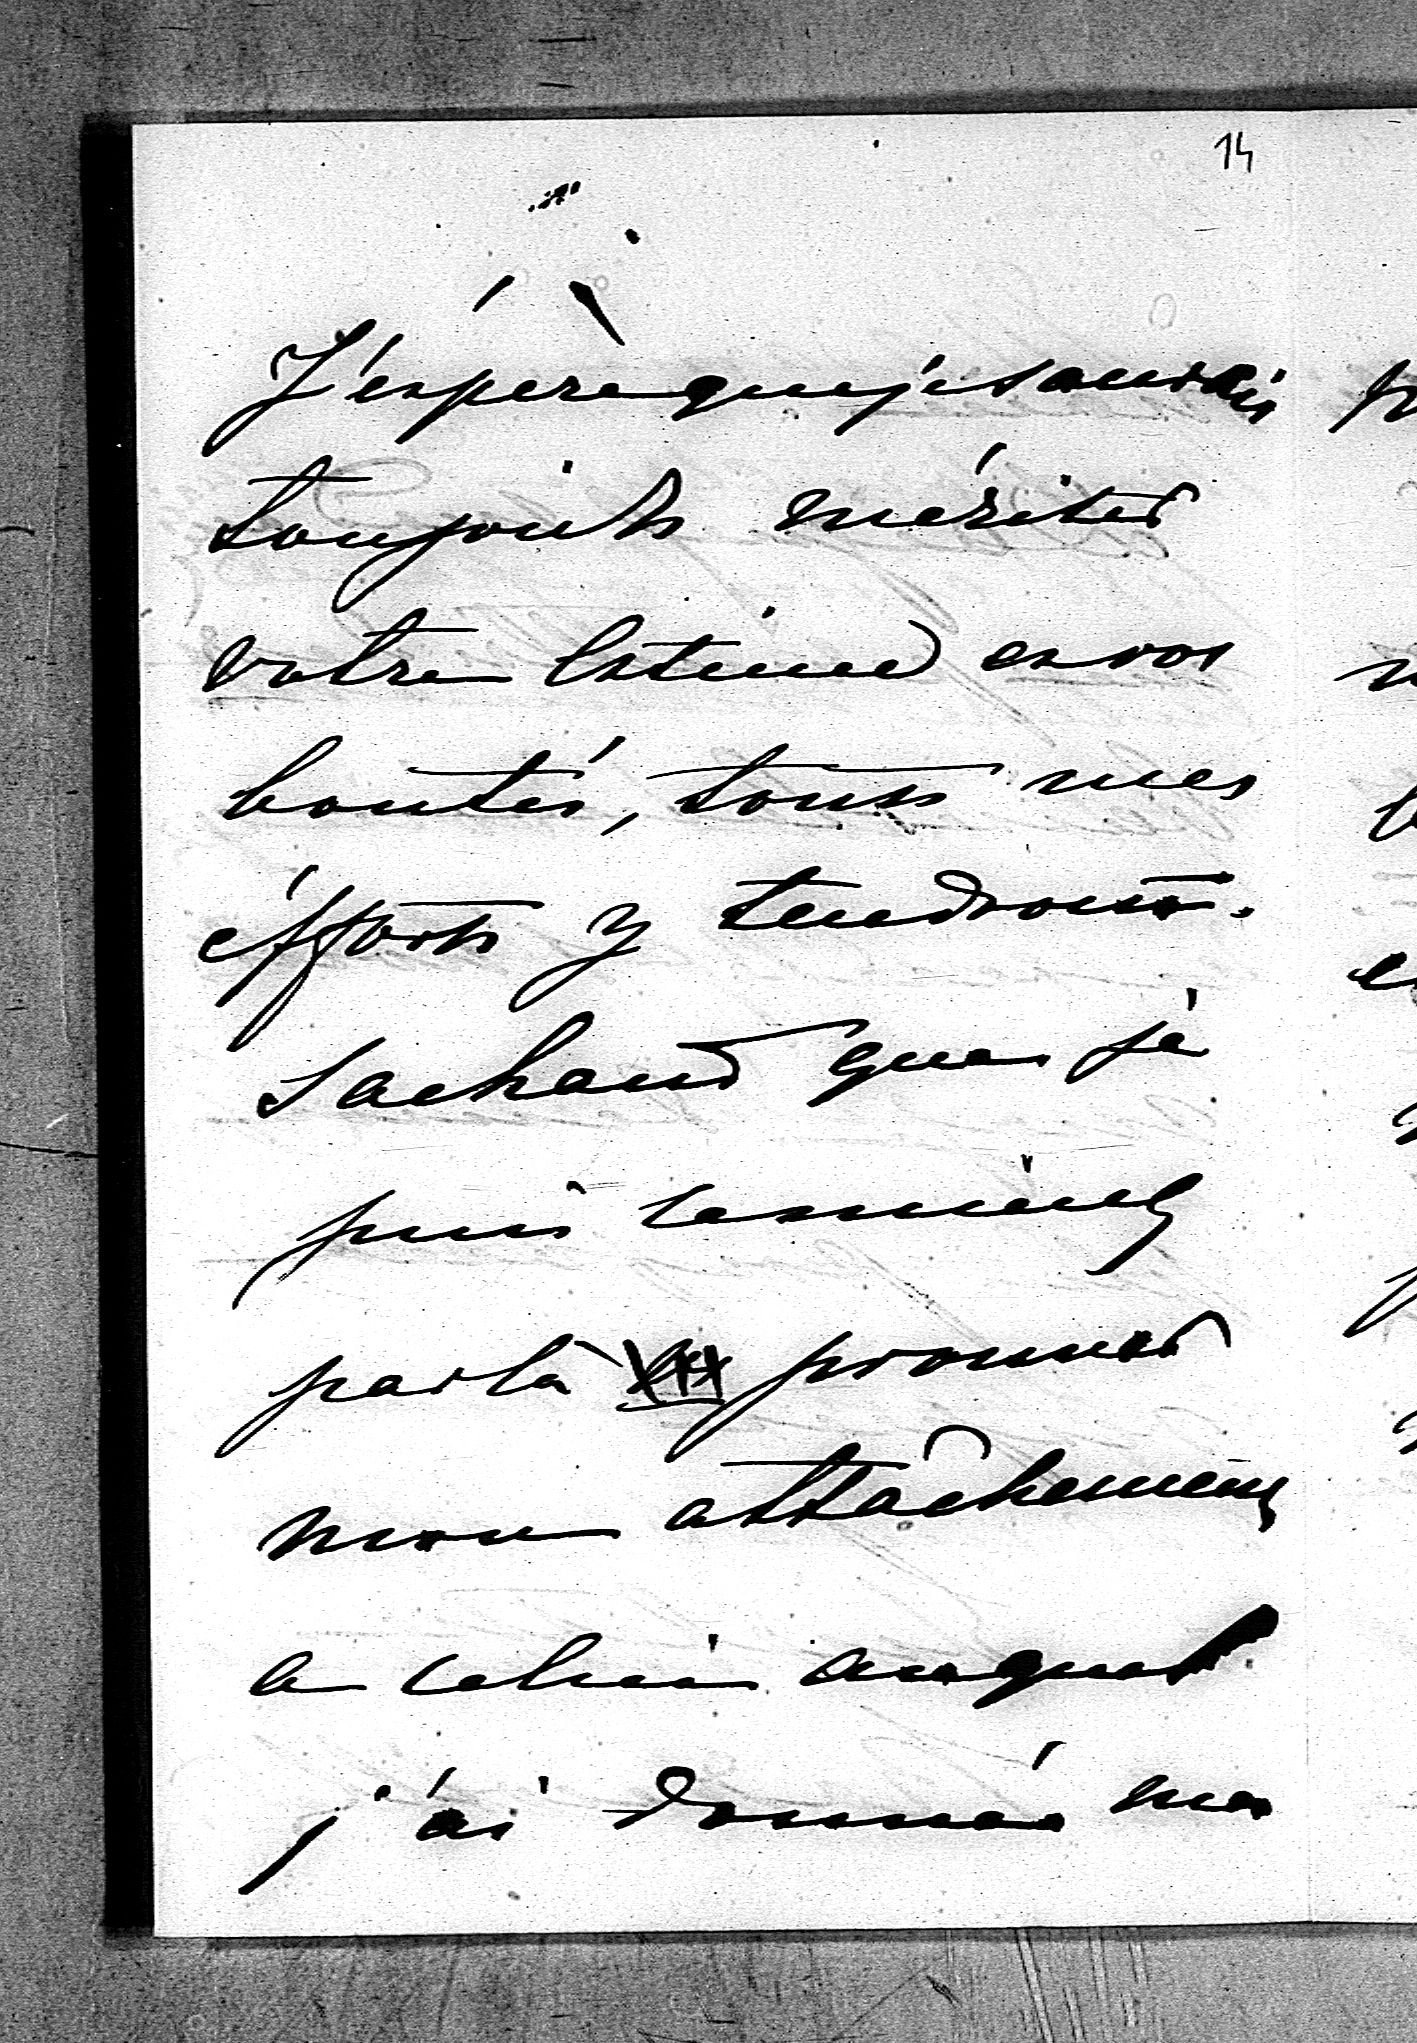 14
J'éspère que je saurais
toujours mériter
votre estime et vos
bontés, touts mes
éfforts y tendront.
Sachant que je
puis
parla prouver
mon attâchement
a celui auquel
j'ai donnée ma